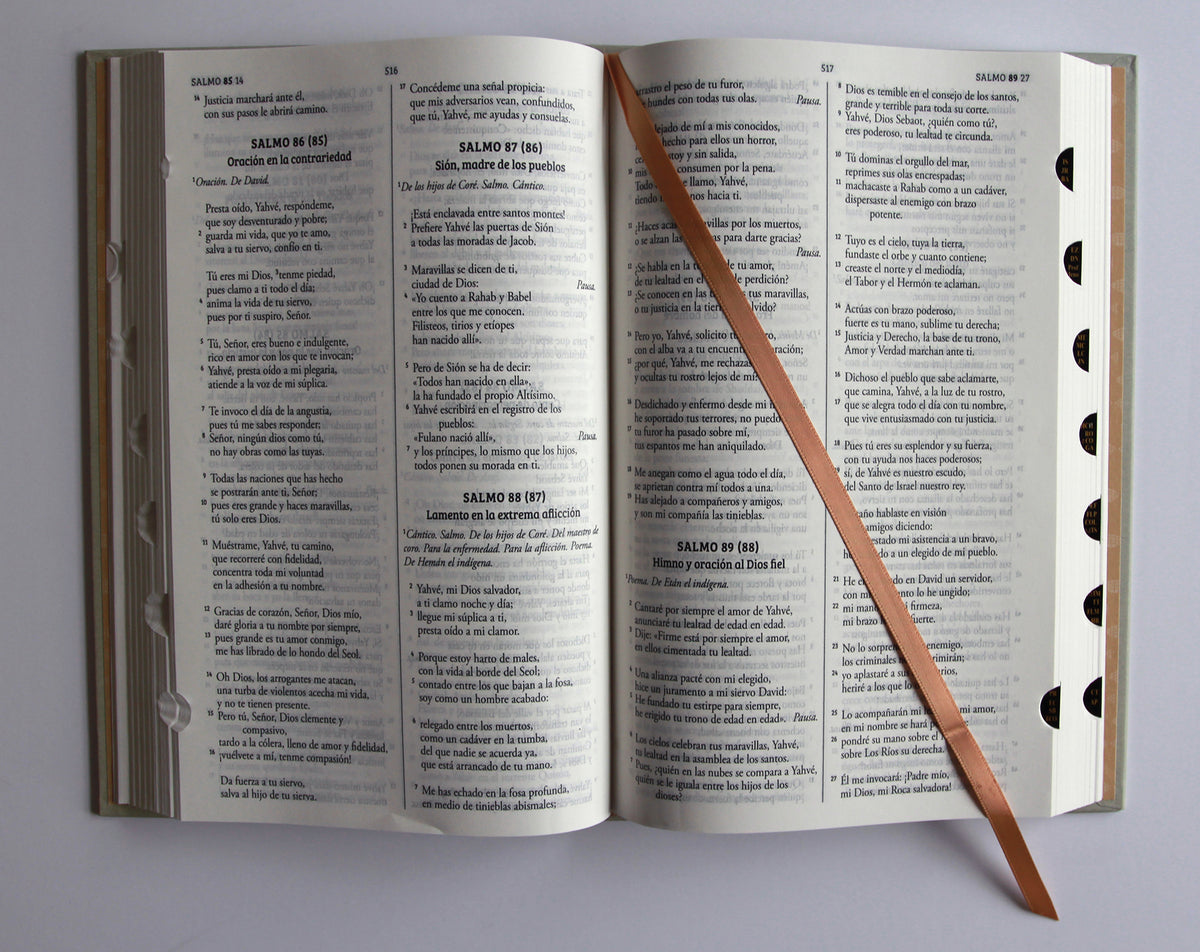 SALMO 85 14
516
14 Justicia marchará ante él,
con sus pasos le abrirá camino.
SALMO 86 (85)
Oración en la contrariedad
1Oración. De David.
Presta oído, Yahvé, respóndeme,
que soy desventurado y pobre;
2 guarda mi vida, que yo te amo,
salva a tu siervo, confío en ti.
Tú eres mi Dios, 3tenme piedad,
pues clamo a ti todo el día;
4 anima la vida de tu siervo,
pues por ti suspiro, Señor.
5 Tú, Señor, eres bueno e indulgente,
rico en amor con los que te invocan;
6 Yahvé, presta oído a mi plegaria,
atiende a la voz de mi súplica.
7 Te invoco el día de la angustia,
pues tú me sabes responder;
8 Señor, ningún dios como tú,
no hay obras como las tuyas.
9 Todas las naciones que has hecho
se postrarán ante ti, Señor;
10 pues eres grande y haces maravillas,
tú solo eres Dios.
11 Muéstrame, Yahvé, tu camino,
que recorreré con fidelidad,
concentra toda mi voluntad
en la adhesión a tu nombre.
12 Gracias de corazón, Señor, Dios mío,
daré gloria a tu nombre por siempre,
13 pues grande es tu amor conmigo,
me has librado de lo hondo del Seol.
14 Oh Dios, los arrogantes me atacan,
una turba de violentos acecha mi vida,
y no te tienen presente.
15 Pero tú, Señor, Dios clemente y
compasivo,
tardo a la cólera, lleno de amor y fidelidad,
16 ¡vuélvete a mí, tenme compasión!
Da fuerza a tu siervo,
salva al hijo de tu sierva.
17 Concédeme una señal propicia:
que mis adversarios vean, confundidos,
que tú, Yahvé, me ayudas y consuelas.
SALMO 87 (86)
Sión, madre de los pueblos
1De los hijos de Coré. Salmo. Cántico.
¡Está enclavada entre santos montes!
2 Prefiere Yahvé las puertas de Sión
a todas las moradas de Jacob.
3 Maravillas se dicen de ti,
ciudad de Dios: Pausa.
4 «Yo cuento a Rahab y Babel
entre los que me conocen.
Filisteos, tirios y etíopes
han nacido allí».
5 Pero de Sión se ha de decir:
«Todos han nacido en ella»,
la ha fundado el propio Altísimo.
6 Yahvé escribirá en el registro de los
pueblos:
«Fulano nació allí», Pausa.
7 y los príncipes, lo mismo que los hijos,
todos ponen su morada en ti.
SALMO 88 (87)
Lamento en la extrema aflicción
1Cántico. Salmo. De los hijos de Coré. Del maestro de
coro. Para la enfermedad. Para la aflicción. Poema.
De Hemán el indígena.
2 Yahvé, mi Dios salvador,
a ti clamo noche y día;
3 llegue mi súplica a ti,
presta oído a mi clamor.
4 Porque estoy harto de males,
con la vida al borde del Seol;
5 contado entre los que bajan a la fosa,
soy como un hombre acabado:
6 relegado entre los muertos,
como un cadáver en la tumba,
del que nadie se acuerda ya,
que está arrancado de tu mano.
7 Me has echado en la fosa profunda,
en medio de tinieblas abismales;
517
SALMO 89 27
arrastro el peso de tu furor,
hundes con todas tus olas. Pausa.
alejado de mí a mis conocidos,
hecho para ellos un horror,
y sin salida,
consumen por la pena.
Todo llamo, Yahvé,
tiendo hacia ti.
11 ¡Haces por los muertos,
o se alzan las para darte gracias?
Pausa.
12 ¿Se habla en la de tu amor,
de tu lealtad en el de perdición?
13 ¿Se conocen en las tus maravillas,
o tu justicia en la tierra olvido?
14 Pero yo, Yahvé, solicito
con el alba va a tu oración;
15 ¿por qué, Yahvé, me rechazas
y ocultas tu rostro lejos de mí?
16 Desdichado y enfermo desde mi
he soportado tus terrores, no puedo
17 tu furor ha pasado sobre mí,
tus espantos me han aniquilado.
18 Me anegan como el agua todo el día,
se aprietan contra mí todos a una.
19 Has alejado a compañeros y amigos,
y son mi compañía las tinieblas.
SALMO 89 (88)
Himno y oración al Dios fiel
1Poema. De Etán el indígena.
2 Cantaré por siempre el amor de Yahvé,
anunciaré tu lealtad de edad en edad.
3 Dije: «Firme está por siempre el amor,
en ellos cimentada tu lealtad.
4 Una alianza pacté con mi elegido,
hice un juramento a mi siervo David:
5 He fundado tu estirpe para siempre,
he erigido tu trono de edad en edad». Pausa.
6 Los cielos celebran tus maravillas, Yahvé,
tu lealtad en la asamblea de los santos.
7 Pues, ¿quién en las nubes se compara a Yahvé,
quién se le iguala entre los hijos de los
dioses?
8 Dios es temible en el consejo de los santos,
grande y terrible para toda su corte.
9 Yahvé, Dios Sebaot, ¿quién como tú?,
eres poderoso, tu lealtad te circunda.
10 Tú dominas el orgullo del mar,
reprimes sus olas encrespadas;
11 machacaste a Rahab como a un cadáver,
dispersaste al enemigo con brazo
potente.
12 Tuyo es el cielo, tuya la tierra,
fundaste el orbe y cuanto contiene;
13 creaste el norte y el mediodía,
el Tabor y el Hermón te aclaman.
14 Actúas con brazo poderoso,
fuerte es tu mano, sublime tu derecha;
15 Justicia y Derecho, la base de tu trono,
Amor y Verdad marchan ante ti.
16 Dichoso el pueblo que sabe aclamarte,
que camina, Yahvé, a la luz de tu rostro,
17 que se alegra todo el día con tu nombre,
que vive entusiasmado con tu justicia.
18 Pues tú eres su esplendor y su fuerza,
con tu ayuda nos haces poderosos;
19 sí, de Yahvé es nuestro escudo,
del Santo de Israel nuestro rey.
hablaste en visión
amigos diciendo:
mi asistencia a un bravo,
a un elegido de mi pueblo.
21 He en David un servidor,
con mi santo lo he ungido;
22 mi mano firmeza,
mi brazo fuerte.
23 No lo enemigo,
los criminales
24 yo aplastaré a
heriré a los que
25 Lo acompañarán mi amor,
en mi nombre se hará
26 pondré su mano sobre el
sobre Los Ríos su derecha.
27 Él me invocará: ¡Padre mío,
mi Dios, mi Roca salvadora!